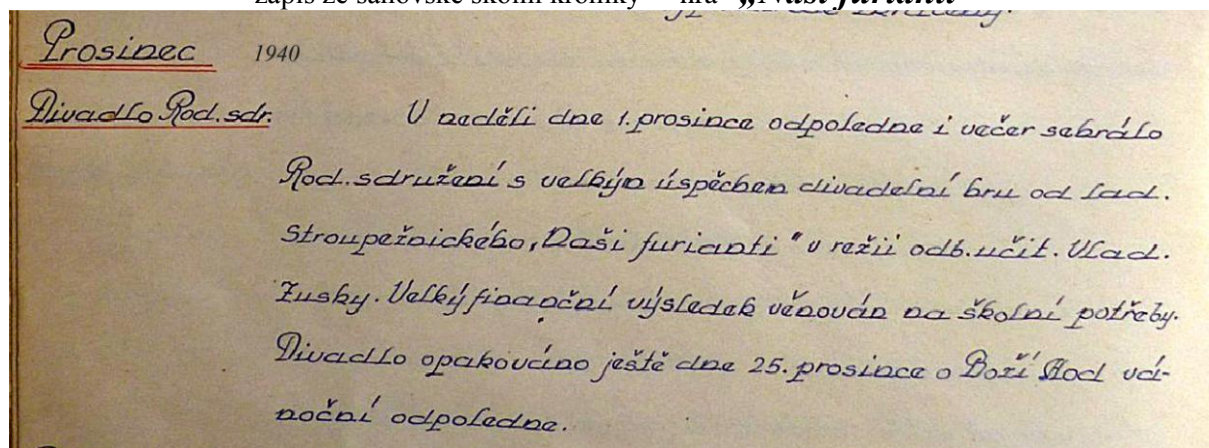 zápis ze šanovské školní kroniky – hra „Naši furianti"
Prosinec 1940
Divadlo Rod. sdr.
V neděli dne 1. prosince odpoledne i večer sehrálo
Rod. sdružení s velkým úspěchem divadelní hru od Lad.
Stroupežnického, Naši furianti " v režii odb. učit. Vlad.
Zusky. Velký finanční výsledek věnován na školní potřeby.
Divadlo opakováno ještě dne 25. prosince o Boží Hod vá-
noční odpoledne.